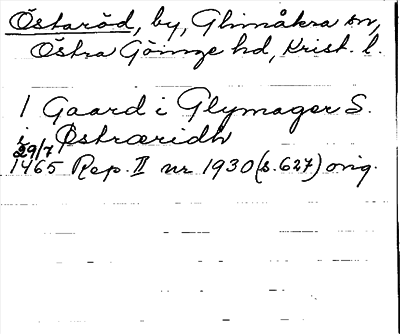 Östaröd, by, Glimåkra sn,
Östra Göinge hd, Krist. l.
1 Gaard i Glymager S.
i Østræridh
29/7
1465 Rep. II nr 1930 (s. 627) orig.